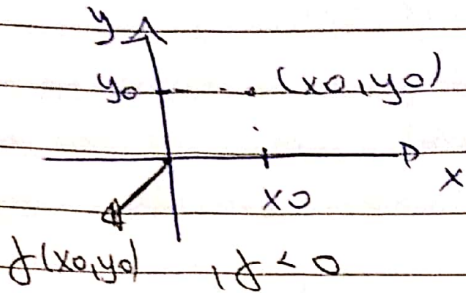 y
y0 (x0,y0)
x0 x
f(x0,y0) , f < 0